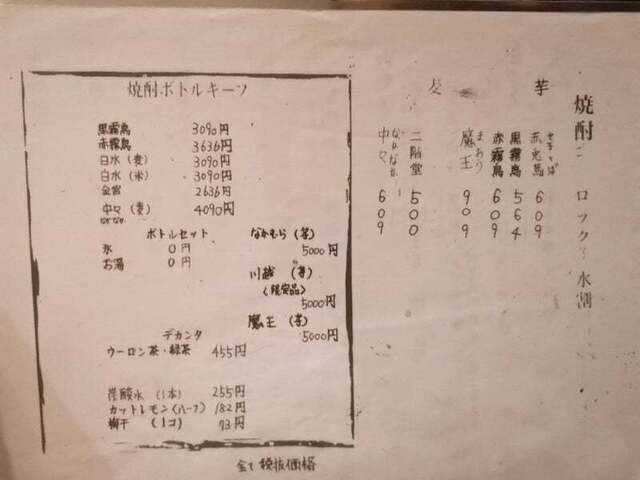 焼酎 ロック 水割
芋
せきとば
赤兎馬 609
黒霧島 564
赤霧島 609
まおう
魔王 909
麦
二階堂 500
なかなか
中々 609
焼酎ボトルキープ
黒霧島 3090円
赤霧島 3636円
白水（麦） 3090円
白水（米） 3090円
金宮 2636円
中々（麦） 4090円
なかなか
ボトルセット
氷 0円
お湯 0円
なかむら（芋）
5000円
川越（芋）
（限定品）
5000円
魔王（芋）
5000円
デカンタ
ウーロン茶・緑茶 455円
炭酸水（1本） 255円
カットレモン（ハーフ） 182円
梅干（1コ） 73円
全て税抜価格